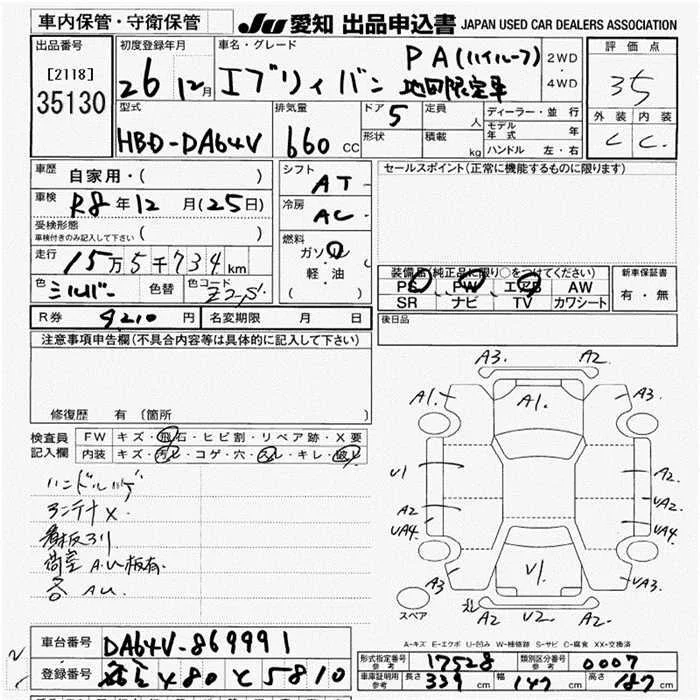 車内保管・守衛保管
JU 愛知 出品申込書 JAPAN USED CAR DEALERS ASSOCIATION
出品番号
[2118]
35130
初度登録年月
26 12月
車名・グレード
エブリィバン
PA(ハイルーフ)
地区限定車
2WD
・
4WD
評価点
35
外装 内装
C C
型式
HBD-DA64V
排気量
660 CC
ドア 5
形状
定員 人
積載 kg
ディーラー・並行
モデル年式 年
ハンドル 左・右
車歴 自家用・( )
車検 R8年12月(25日)
受検形態
車検付きのみ記入して下さい ( )
走行 15万5千734km
色 シルバー 色替 色コード Z2S
シフト AT
冷房 AC
燃料
ガソリン
軽・油
( )
セールスポイント(正常に機能するものに限ります)
装備品(純正品に限り○をつけてください)
PS PW エアB AW
SR ナビ TV カワシート
新車保証書
有・無
R券 9210円 名変期限 月 日
後日品
注意事項申告欄(不具合内容等は具体的に記入して下さい)
修復歴 有(箇所 )
検査員記入欄
FW キズ・飛石・ヒビ割・リペア跡・X要
内装 キズ・汚レ・コゲ・穴・スレ・キレ・破レ
ハンドルスレ
アンテナX
看板ヌリ
荷室A.U板有
各AU
A3. A2.
A1. A1. A3.
V1 A2.
A2 UA2.
UA4. UA4.
A3 V1 UA3.
A2 U2. A2
スペア
A-キズ E-エクボ U-凹み W-補修跡 S-サビ C-腐食 XX-交換済
車台番号 DA64V-869991
登録番号 480 と 5810
形式指定番号 参考 17528 類別区分番号 参考 0007
車庫証明用 参考 長さ 339cm 幅 147cm 高さ 187cm